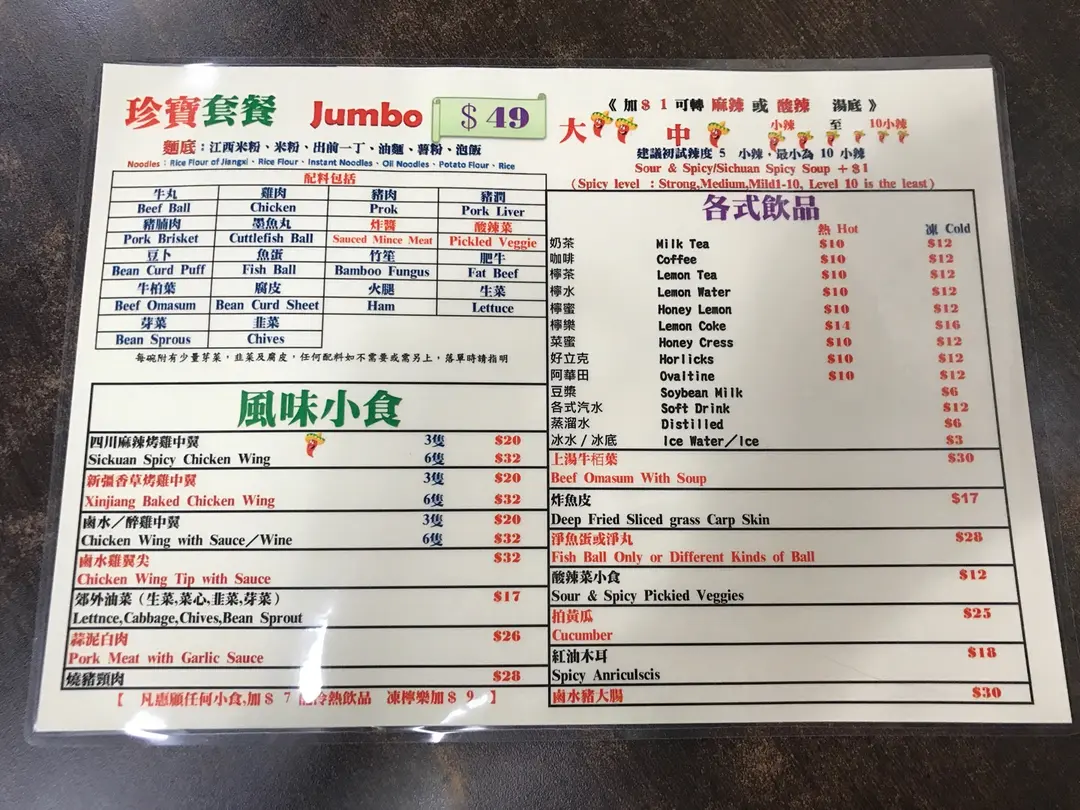 珍寶套餐 Jumbo $ 49
麵底：江西米粉、米粉、出前一丁、油麵、薯粉、泡飯
Noodles : Rice Flour of Jiangxi、Rice Flour、Instant Noodles、Oil Noodles、Potato Flour、Rice
配料包括
牛丸 雞肉 豬肉 豬潤
Beef Ball Chicken Prok Pork Liver
豬腩肉 墨魚丸 炸醬 酸辣菜
Pork Brisket Cuttlefish Ball Sauced Mince Meat Pickled Veggie
豆卜 魚蛋 竹笙 肥牛
Bean Curd Puff Fish Ball Bamboo Fungus Fat Beef
牛柏葉 腐皮 火腿 生菜
Beef Omasum Bean Curd Sheet Ham Lettuce
芽菜 韭菜
Bean Sprous Chives
每碗附有少量芽菜，韭菜及腐皮，任何配料如不需要或需另上，落單時請指明
風味小食
四川麻辣烤雞中翼 3隻 $20
Sickuan Spicy Chicken Wing 6隻 $32
新疆香草烤雞中翼 3隻 $20
Xinjiang Baked Chicken Wing 6隻 $32
鹵水／醉雞中翼 3隻 $20
Chicken Wing with Sauce／Wine 6隻 $32
鹵水雞翼尖 $32
Chicken Wing Tip with Sauce
郊外油菜（生菜,菜心,韭菜,芽菜） $17
Lettnce,Cabbage,Chives,Bean Sprout
蒜泥白肉 $26
Pork Meat with Garlic Sauce
燒豬頸肉 $28
【 凡惠顧任何小食,加 $ 7 冷熱飲品 凍檸樂加 $ 9 】
《 加 $ 1 可轉 麻辣 或 酸辣 湯底 》
大 中 小辣 至 10小辣
建議初試辣度 5 小辣，最小為 10 小辣
Sour & Spicy/Sichuan Spicy Soup ＋$1
（Spicy level ：Strong,Medium,Mild1-10, Level 10 is the least）
各式飲品
熱 Hot 凍 Cold
奶茶 Milk Tea $10 $12
咖啡 Coffee $10 $12
檸茶 Lemon Tea $10 $12
檸水 Lemon Water $10 $12
檸蜜 Honey Lemon $10 $12
檸樂 Lemon Coke $14 $16
菜蜜 Honey Cress $10 $12
好立克 Horlicks $10 $12
阿華田 Ovaltine $10 $12
豆漿 Soybean Milk $6
各式汽水 Soft Drink $12
蒸溜水 Distilled $6
冰水 / 冰底 Ice Water／Ice $3
上湯牛栢葉 $30
Beef Omasum With Soup
炸魚皮 $17
Deep Fried Sliced grass Carp Skin
淨魚蛋或淨丸 $28
Fish Ball Only or Different Kinds of Ball
酸辣菜小食 $12
Sour & Spicy Pickied Veggies
拍黃瓜 $25
Cucumber
紅油木耳 $18
Spicy Anriculscis
鹵水豬大腸 $30